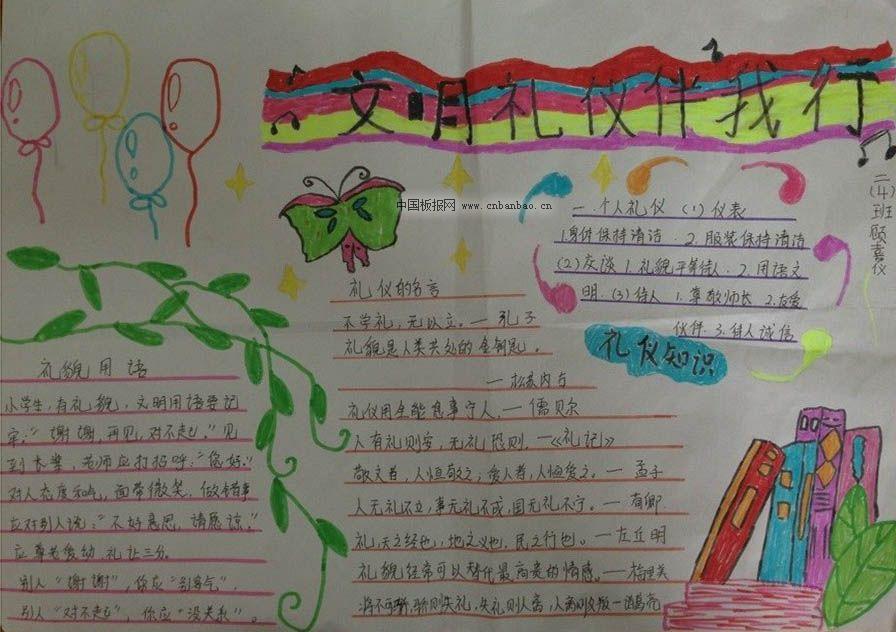 文明礼仪伴我行
二(4)班顾喜仪
中国板报网 www.cnbanbao.cn
一.个人礼仪 (1)仪表
1.身体保持清洁. 2.服装保持清洁
(2)交谈 1.礼貌平等待人. 2.用语文
明. (3)待人 1.尊敬师长 2.友爱
伙伴. 3.待人诚信
礼仪知识
礼仪的名言
不学礼,无以立。— 孔子
礼貌是人类共处的金钥匙。
— 松苏内吉
礼仪周全能息事宁人。— 儒贝尔
人有礼则安,无礼 则。—《礼记》
敬人者,人恒敬之,爱人者,人恒爱之。— 孟子
人无礼不立,事无礼不成,国无礼不宁。— 荀卿
礼,天之经也,地之义也,民之行也。— 左丘明
礼貌经常可以替代最高贵的情感。— 梅里美
将不可骄,骄则失礼,失礼则人离,人离则众叛 — 诸葛亮
礼貌用语
小学生,有礼貌,文明用语要记
牢:“谢谢,再见,对不起。”见
到长辈,老师应打招呼:“您好。”
对人态度和气,面带微笑,做错事
应对别人说:“不好意思,请原谅。”
应尊老爱幼 礼让三分。
别人“谢谢”,你应“别客气”,
别人“对不起”,你应“没关系”。